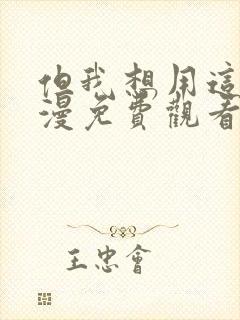 但我想用這
漫免費觀看
王忠會